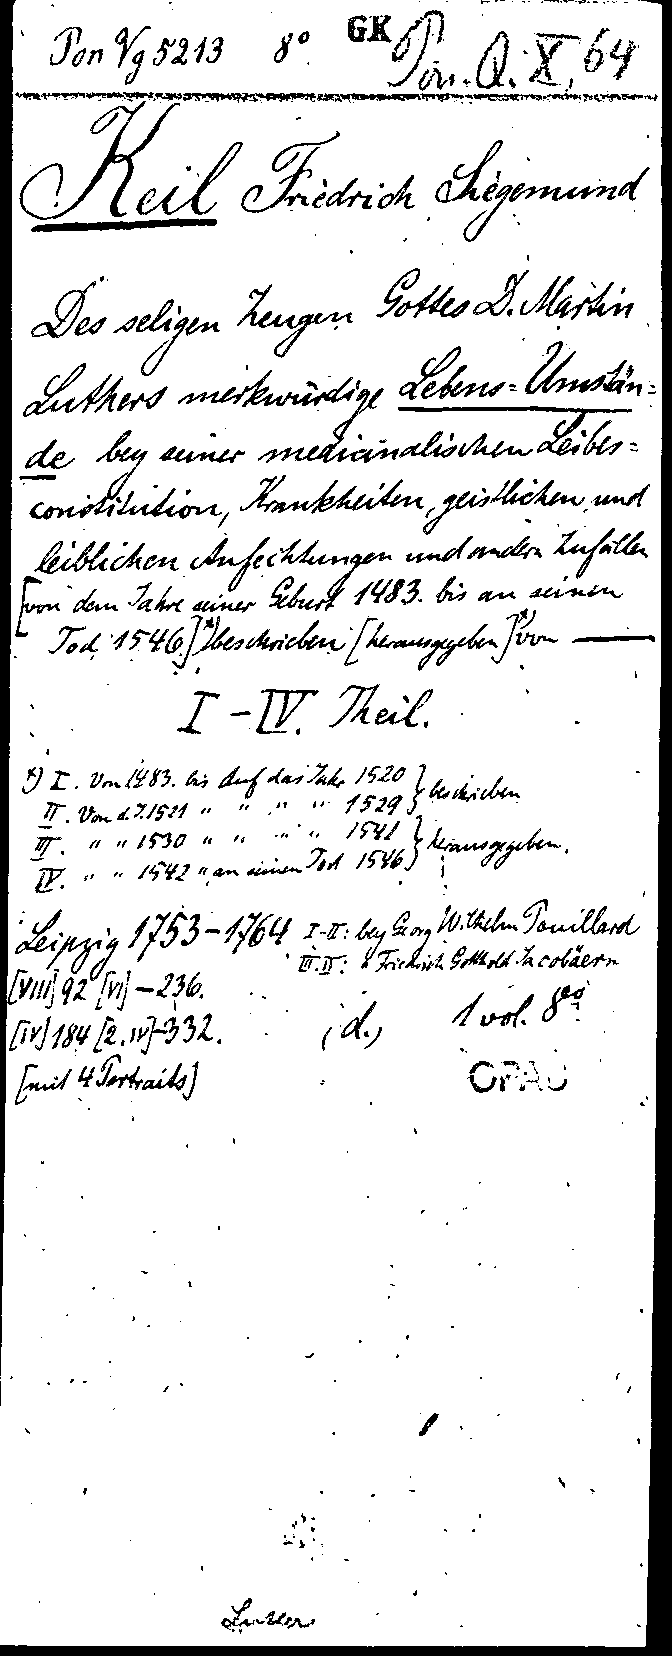 Pon Vg 5213 8° GK Pon. Q. X, 64
Keil Friedrich Siegemund
Des seligen Zeugen Gottes D. Martin
Luthers merkwürdige Lebens=Umstän=
de bey seiner medicinalischen Leibes=
constitution, Krankheiten, geistlichen und
leiblichen Anfechtungen und andern Zufällen
[von dem Jahre seiner Geburt 1483. bis an seinen
Tod 1546] *) beschrieben [herausgegeben] *) von ———
I-IV. Theil.
*) I. Von 1483. bis Auf das Jahr 1520 } beschrieben
II. Von d. J. 1521 " " " " 1529 }
III. " " 1530 " " " " 1541 } herausgegeben.
IV. " " 1542 " an seinen Tod 1546 }
Leipzig 1753-1764 I-II: bey Georg Wilhelm Pouillard
III. IV: " Friedrich Gotthold Jacobäern
[VIII] 92 [VI] -236.
[IV] 184 [2. IV] -332. (d.) 1 vol. 8vo
[mit 4 Portraits] OPAC
Luther